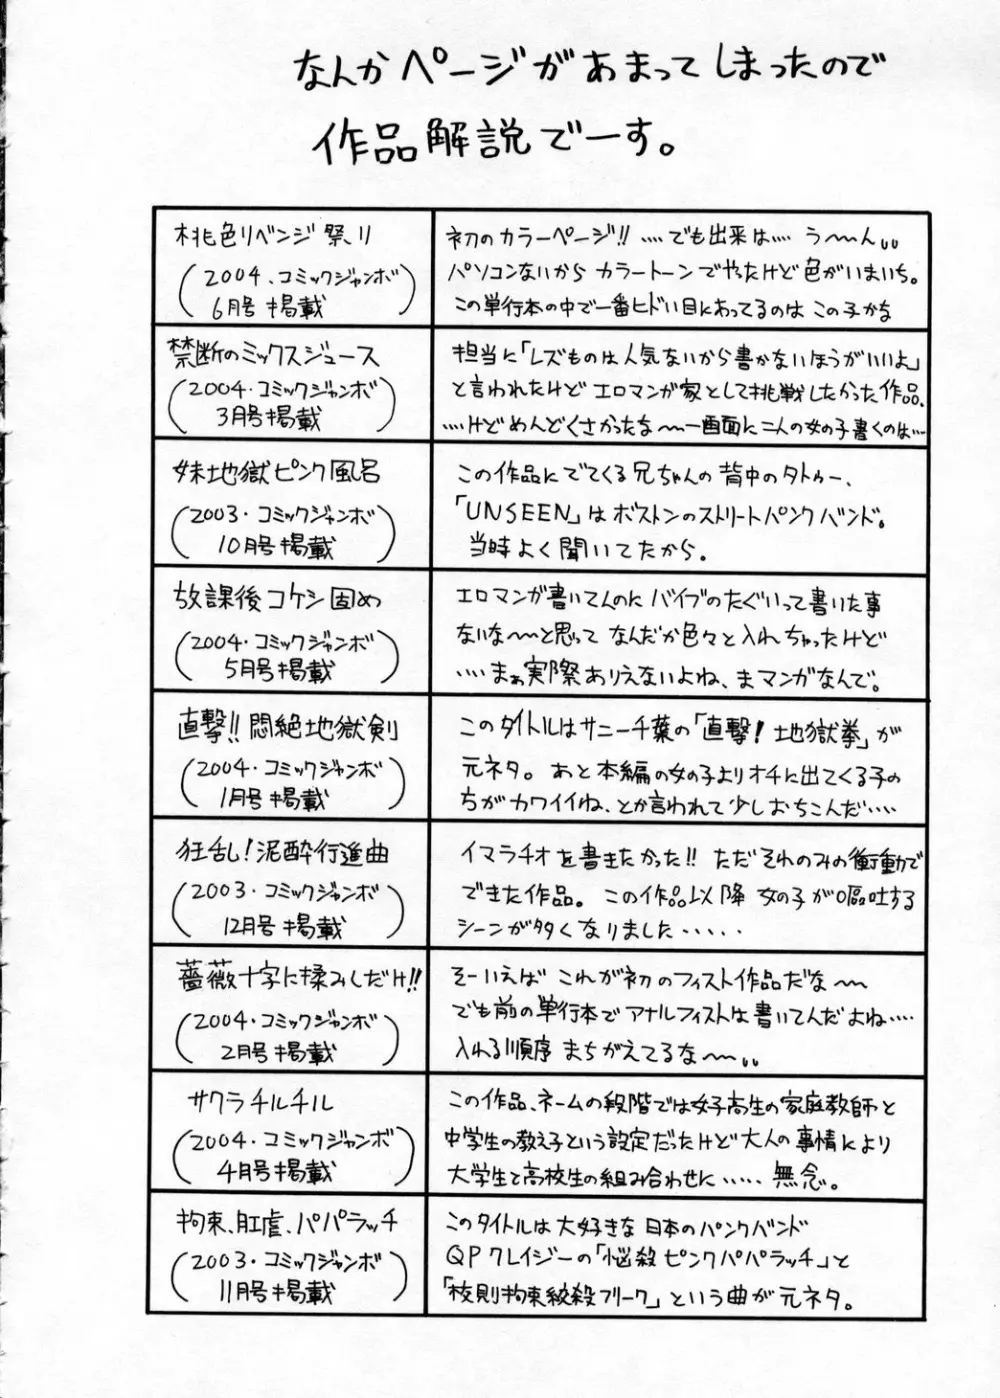 なんかページがあまってしまったので
作品解説でーす。
桃色リベンジ祭り
(2004.コミックジャンボ
6月号掲載)
初のカラーページ!! ‥‥でも出来は‥‥ う〜ん,,
パソコンないから カラートーンでやったけど色がいまいち。
この単行本の中で一番ヒドい目にあってるのは この子かな
禁断のミックスジュース
(2004・コミックジャンボ
3月号掲載)
担当に「レズものは人気ないから書かないほうがいいよ」
と言われたけど エロマンガ家として挑戦したかった作品、
‥‥けどめんどくさかったな〜一画面に二人の女の子書くのは‥‥
妹地獄ピンク風呂
(2003・コミックジャンボ
10月号掲載)
この作品にでてくる兄ちゃんの背中のタトゥー、
「UNSEEN」はボストンのストリートパンクバンド。
当時よく聞いてたから。
放課後コケシ固め
(2004・コミックジャンボ
5月号掲載)
エロマンガ書いてんのに バイブのたぐいって書いた事
ないな〜と思って なんだか色々と入れちゃったけど
‥‥まぁ実際ありえないよね、まマンガなんで。
直撃!! 悶絶地獄剣
(2004・コミックジャンボ
1月号掲載)
このタイトルはサニー千葉の「直撃! 地獄拳」が
元ネタ。あと本編の女の子よりオチに出てくる子の
ちがカワイイね、とか言われて少しおちこんだ‥‥
狂乱!泥酔行進曲
(2003・コミックジャンボ
12月号掲載)
イマラチオを書きたかった!! ただそれのみの衝動で
できた作品。この作品以降 女の子が嘔吐する
シーンが多くなりました‥‥‥
薔薇十字に揉みしだけ!!
(2004・コミックジャンボ
2月号掲載)
そーいえば これが初のフィスト作品だな〜
でも前の単行本でアナルフィストは書いてんだよね‥‥
入れる順序まちがえてるな〜,,
サクラチルチル
(2004・コミックジャンボ
4月号掲載)
この作品、ネームの段階では女子高生の家庭教師と
中学生の教え子という設定だったけど大人の事情により
大学生と高校生の組み合わせに‥‥‥ 無念。
拘束、肛虐、パパラッチ
(2003・コミックジャンボ
11月号掲載)
このタイトルは大好きな日本のパンクバンド
QPクレイジーの「悩殺ピンクパパラッチ」と
「校則拘束絞殺フリーク」という曲が元ネタ。